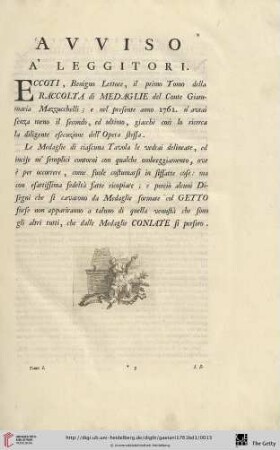 AVVISO
A' LEGGITORI.
ECCOTI, Benigno Lettore, il primo Tomo della
RACCOLTA di MEDAGLIE del Conte Giam-
maria Mazzuchelli; e nel presente anno 1762. n'avrai
senza meno il secondo, ed ultimo, giacchè così lo ricerca
la diligente esecuzione dell'Opera stessa.
Le Medaglie di ciascuna Tavola le vedrai delineate, ed
incise ne' semplici contorni con qualche ombreggiamento, ove
è per occorrere, come suole costumarsi in siffatte cose: ma
con esattissima fedeltà fatte ricopiare; e perciò alcuni Di-
segni che si cavarono da Medaglie formate col GETTO
forse non appariranno a taluno di quella venustà che sono
gli altri tutti, che dalle Medaglie CONIATE si presero.
Tomo I. * 3 I. B.
http://digi.ub.uni-heidelberg.de/diglit/gaetani1761bd1/0013
© Universitätsbibliothek Heidelberg
The Getty